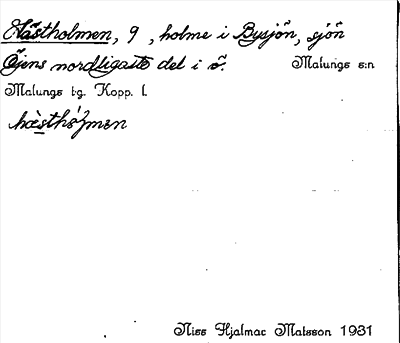 Hästholmen, 9, holme i Bysjön, sjön
Öjens nordligaste del i ö.
Malungs s:n
Malungs tg. Kopp. l.
Niss Hjalmar Matsson 1931